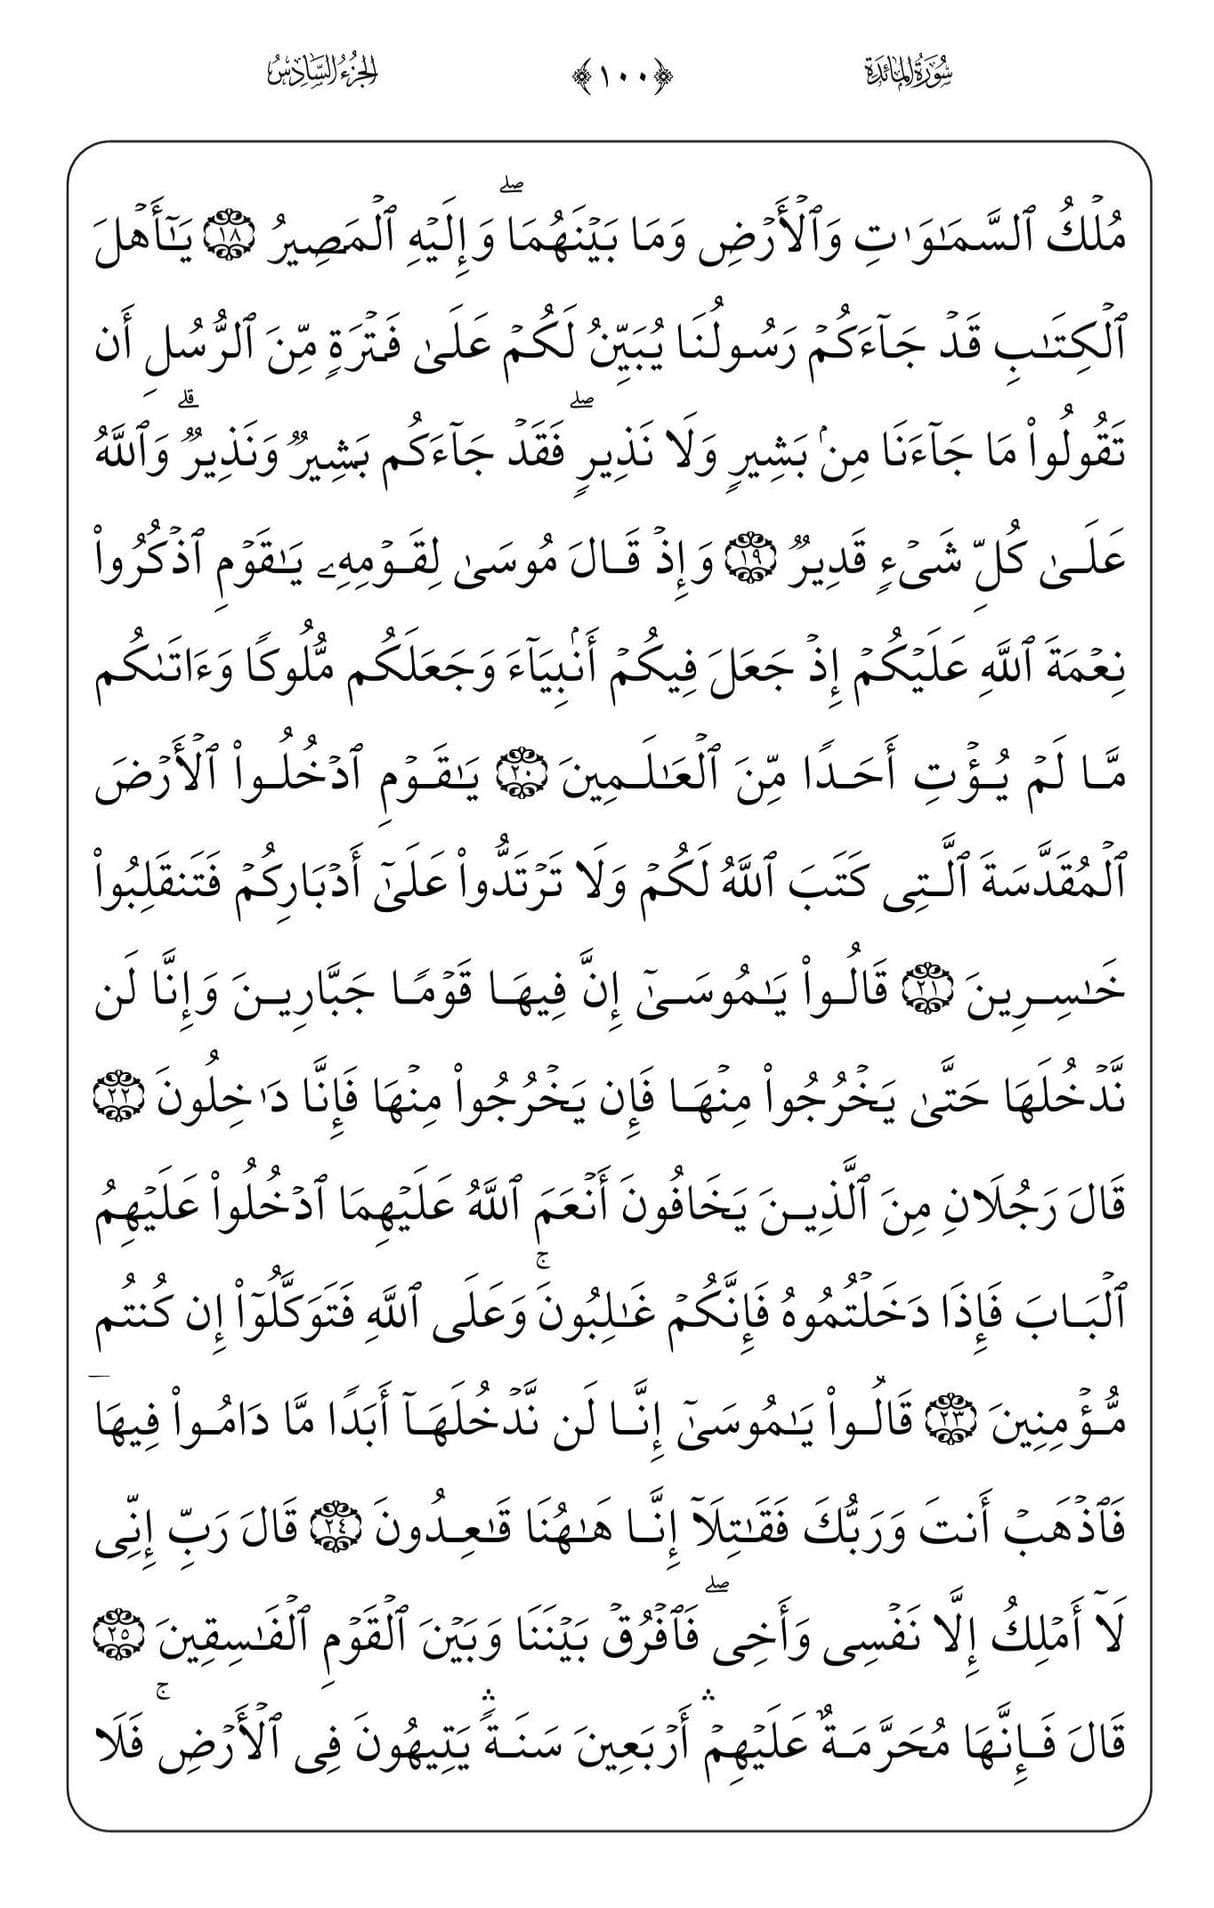 سُورَةُ المَائِدَة ﴿١٠٠﴾ الجُزْءُ السَّادِسُ
مُلۡكُ ٱلسَّمَٰوَٰتِ وَٱلۡأَرۡضِ وَمَا بَيۡنَهُمَاۖ وَإِلَيۡهِ ٱلۡمَصِيرُ ١٨ يَٰٓأَهۡلَ
ٱلۡكِتَٰبِ قَدۡ جَآءَكُمۡ رَسُولُنَا يُبَيِّنُ لَكُمۡ عَلَىٰ فَتۡرَةٖ مِّنَ ٱلرُّسُلِ أَن
تَقُولُواْ مَا جَآءَنَا مِنۢ بَشِيرٖ وَلَا نَذِيرٖۖ فَقَدۡ جَآءَكُم بَشِيرٞ وَنَذِيرٞۗ وَٱللَّهُ
عَلَىٰ كُلِّ شَيۡءٖ قَدِيرٞ ١٩ وَإِذۡ قَالَ مُوسَىٰ لِقَوۡمِهِۦ يَٰقَوۡمِ ٱذۡكُرُواْ
نِعۡمَةَ ٱللَّهِ عَلَيۡكُمۡ إِذۡ جَعَلَ فِيكُمۡ أَنۢبِيَآءَ وَجَعَلَكُم مُّلُوكٗا وَءَاتَىٰكُم
مَّا لَمۡ يُؤۡتِ أَحَدٗا مِّنَ ٱلۡعَٰلَمِينَ ٢٠ يَٰقَوۡمِ ٱدۡخُلُواْ ٱلۡأَرۡضَ
ٱلۡمُقَدَّسَةَ ٱلَّتِي كَتَبَ ٱللَّهُ لَكُمۡ وَلَا تَرۡتَدُّواْ عَلَىٰٓ أَدۡبَارِكُمۡ فَتَنقَلِبُواْ
خَٰسِرِينَ ٢١ قَالُواْ يَٰمُوسَىٰٓ إِنَّ فِيهَا قَوۡمٗا جَبَّارِينَ وَإِنَّا لَن
نَّدۡخُلَهَا حَتَّىٰ يَخۡرُجُواْ مِنۡهَا فَإِن يَخۡرُجُواْ مِنۡهَا فَإِنَّا دَٰخِلُونَ ٢٢
قَالَ رَجُلَانِ مِنَ ٱلَّذِينَ يَخَافُونَ أَنۡعَمَ ٱللَّهُ عَلَيۡهِمَا ٱدۡخُلُواْ عَلَيۡهِمُ
ٱلۡبَابَ فَإِذَا دَخَلۡتُمُوهُ فَإِنَّكُمۡ غَٰلِبُونَۚ وَعَلَى ٱللَّهِ فَتَوَكَّلُوٓاْ إِن كُنتُم
مُّؤۡمِنِينَ ٢٣ قَالُواْ يَٰمُوسَىٰٓ إِنَّا لَن نَّدۡخُلَهَآ أَبَدٗا مَّا دَامُواْ فِيهَا
فَٱذۡهَبۡ أَنتَ وَرَبُّكَ فَقَٰتِلَآ إِنَّا هَٰهُنَا قَٰعِدُونَ ٢٤ قَالَ رَبِّ إِنِّي
لَآ أَمۡلِكُ إِلَّا نَفۡسِي وَأَخِيۖ فَٱفۡرُقۡ بَيۡنَنَا وَبَيۡنَ ٱلۡقَوۡمِ ٱلۡفَٰسِقِينَ ٢٥
قَالَ فَإِنَّهَا مُحَرَّمَةٌ عَلَيۡهِمۡۛ أَرۡبَعِينَ سَنَةٗۛ يَتِيهُونَ فِي ٱلۡأَرۡضِۚ فَلَا